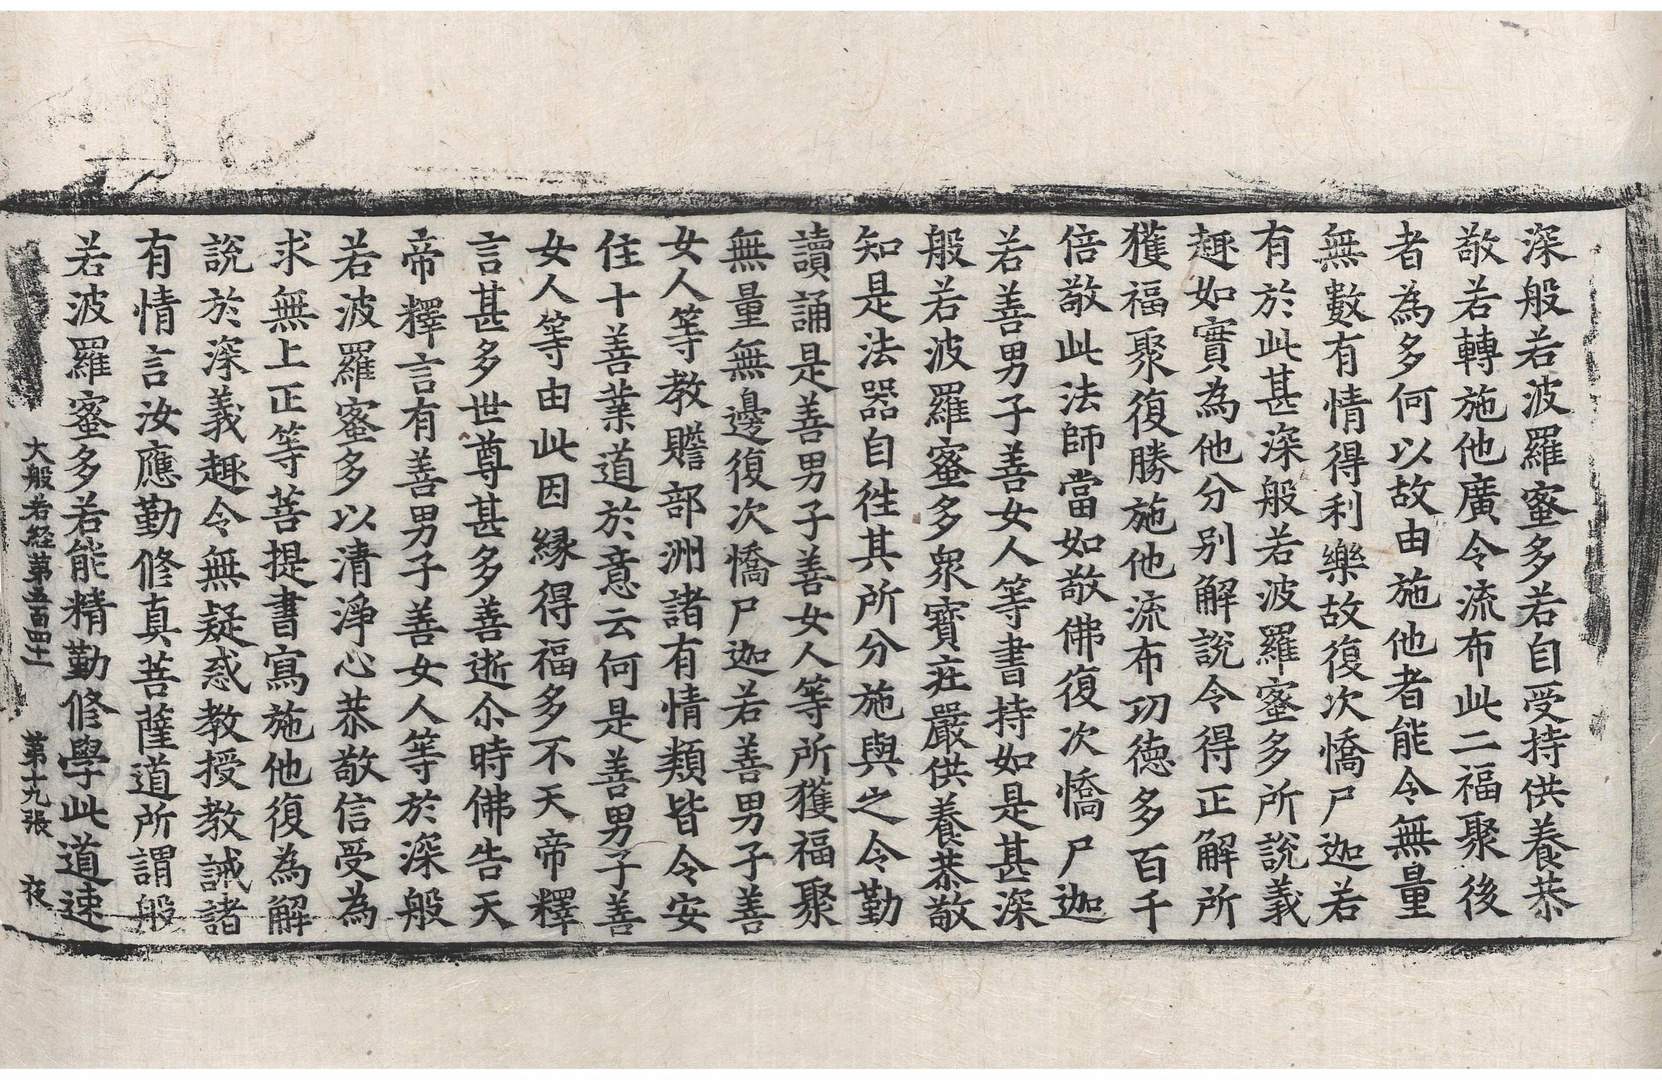 深般若波羅蜜多若自受持供養恭
敬若轉施他廣令流布此二福聚後
者為多何以故由施他者能令無量
無數有情得利樂故復次憍尸迦若
有於此甚深般若波羅蜜多所說義
趣如實為他分別解說令得正解所
獲福聚復勝施他流布功德多百千
倍敬此法師當如敬佛復次憍尸迦
若善男子善女人等書持如是甚深
般若波羅蜜多衆寶莊嚴供養恭敬
知是法器自往其所分施與之令勤
讀誦是善男子善女人等所獲福聚
無量無邊復次憍尸迦若善男子善
女人等教贍部洲諸有情類皆令安
住十善業道於意云何是善男子善
女人等由此因緣得福多不天帝釋
言甚多世尊甚多善逝尒時佛告天
帝釋言有善男子善女人等於深般
若波羅蜜多以清淨心恭敬信受為
求無上正等菩提書寫施他復為解
說於深義趣令無疑惑教授教誡諸
有情言汝應勤修真菩薩道所謂般
若波羅蜜多若能精勤修學此道速
大般若経第五百四十一 第十九張 夜